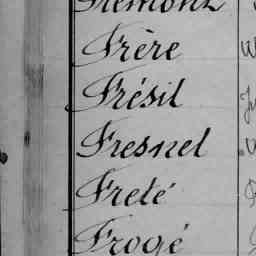 Frémont
Frère
Frésil
Fresnel
Freté
Frogé